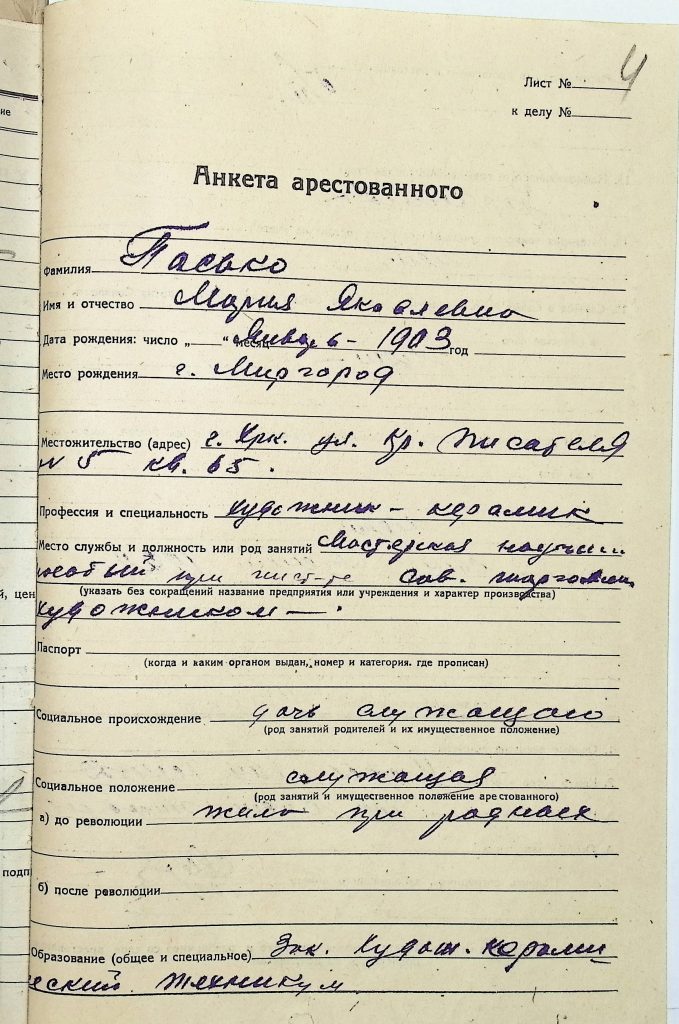 4
Лист №
к делу №
Анкета арестованного
Фамилия Пасько
Имя и отчество Мария Яковлевна
Дата рождения: число „ “ месяц Январь - 1903 год
Место рождения г. Миргород
Местожительство (адрес) г. Хрк. ул. Кр. Писателя
N 5 кв. 65.
Профессия и специальность художник - керамик
Место службы и должность или род занятий Мастерская
при инст-те Сов. торговли
(указать без сокращений название предприятия или учреждения и характер производства)
художником - .
Паспорт
(когда и каким органом выдан, номер и категория. где прописан)
Социальное происхождение дочь служащего
(род занятий родителей и их имущественное положение)
Социальное положение служащая
(род занятий и имущественное положение арестованного)
а) до революции жила при родных
б) после революции
Образование (общее и специальное) Зок. Худож. керами-
ческий техникум
ие
й, цен
подп